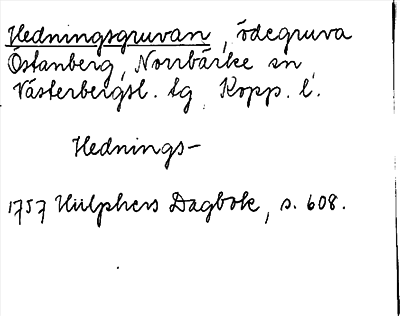 Hedningsgruvan, ödegruva
Östanberg, Norrbärke sn,
Västerbergsl. tg Kopp. l.
Hednings-
1757 Hülphers Dagbok, s. 608.